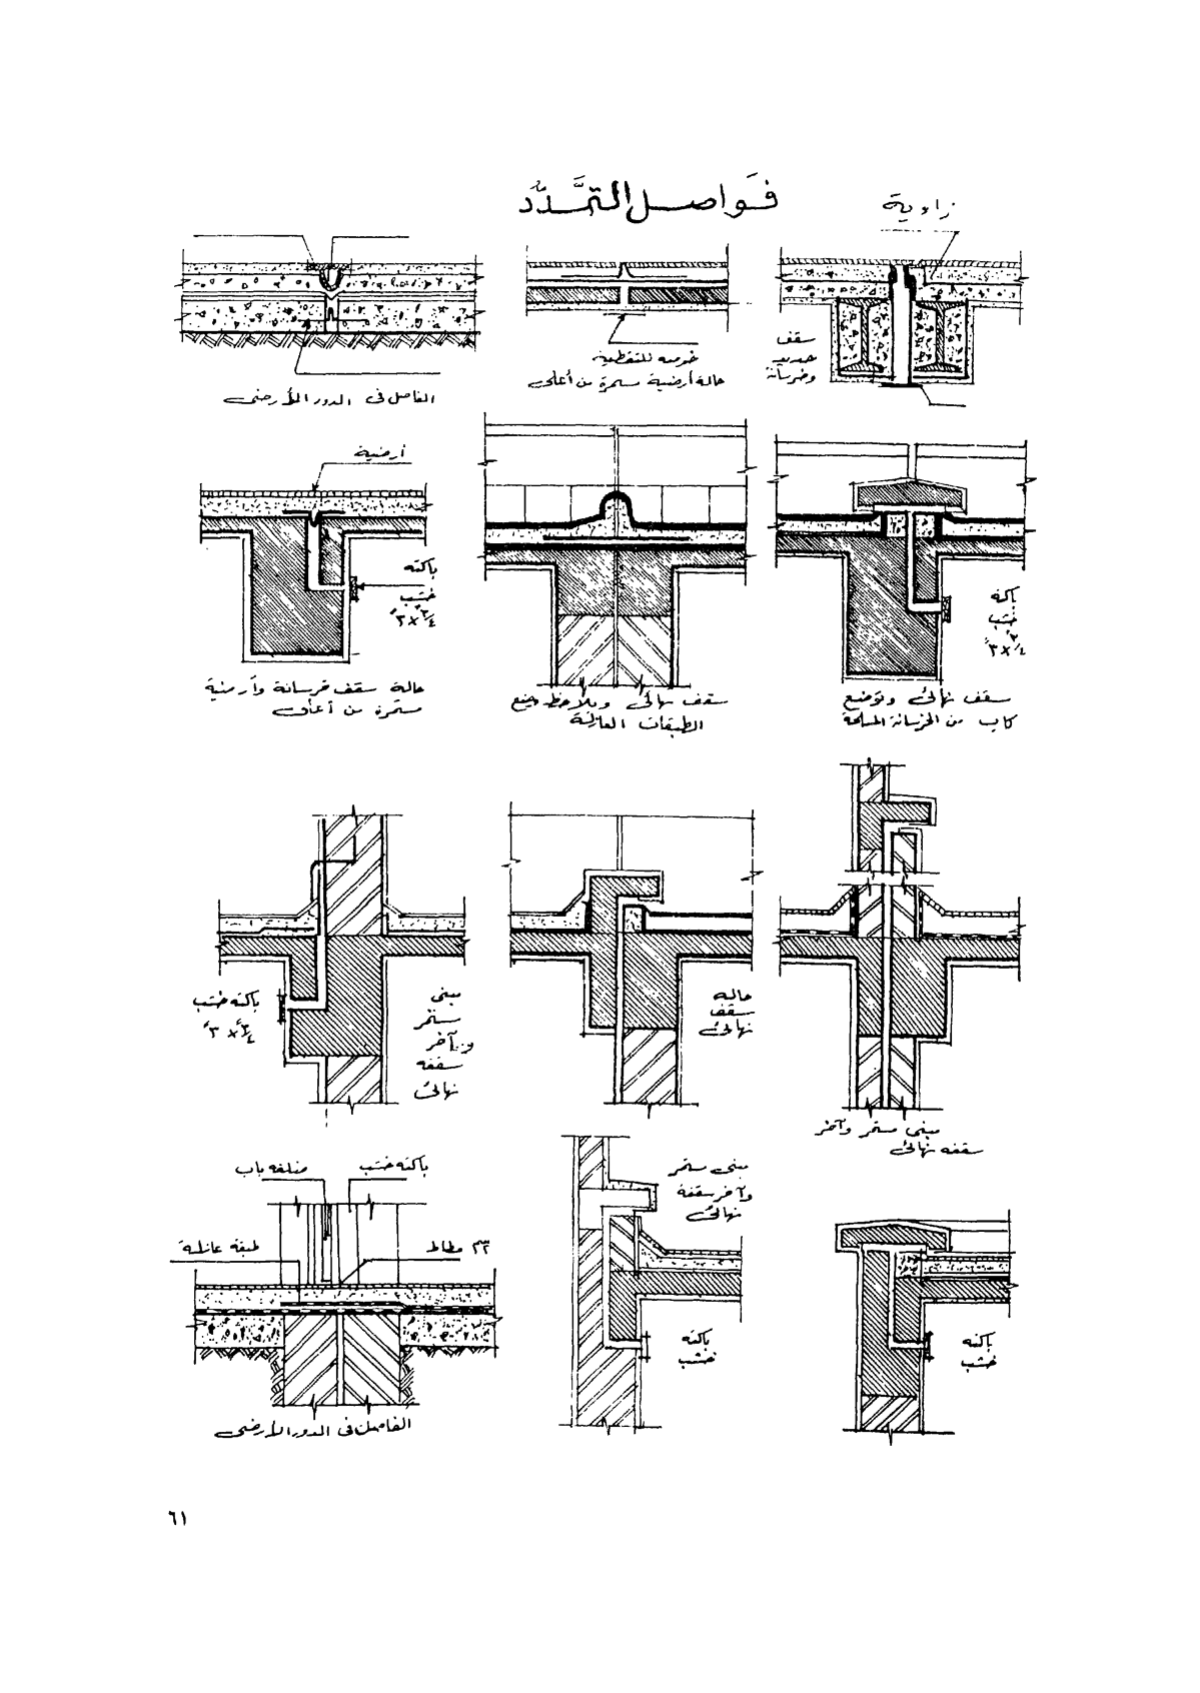 فَوَاصل التمَّدّد
زاوية
سقف
حديد
وخرسانة
خوصه للتغطية
حالة أرضية مستمرة من أعلى
الفاصل فى الدور الأرضى
أرضية
باكته
خشب
٣/٤ × ٣ً
حالة سقف خرسانة وأرضية
مستمرة من أعلى
سقف نهائى ويلاحظ وضع
الطبقات العازلة
باكته
خشب
٣/٤ × ٣ً
سقف نهائى وتوضع
كاب من الخرسانة المسلحة
باكته خشب
٣/٤ × ٣ً
مبنى
مستمر
وآخر
سقفه
نهائى
حالة
سقف
نهائى
مبنى مستمر وآخر
سقفه نهائى
ضلفه باب
باكته خشب
طبقة عازلة
مطاط
الفاصل فى الدور الأرضى
مبنى مستمر
وآخر سقفة
نهائى
باكته
خشب
باكته
خشب
٦١